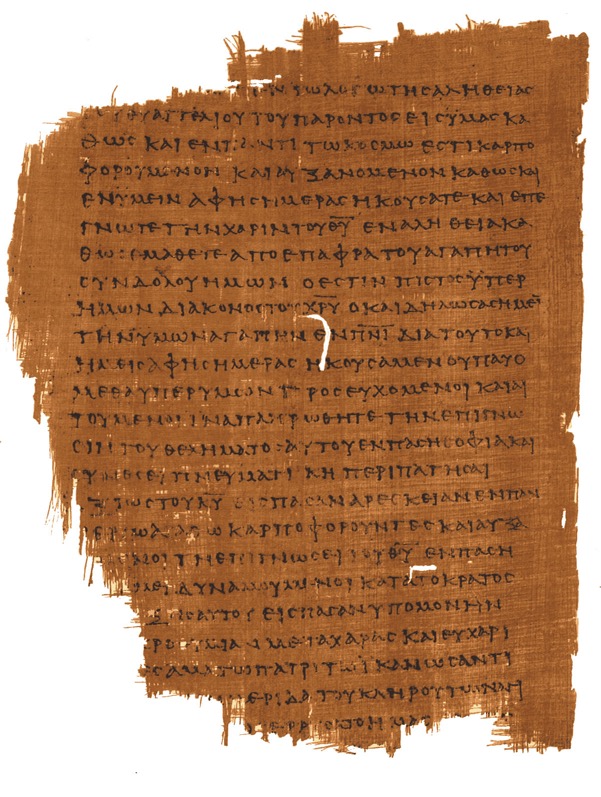 τω λογω της αληθειας
ευαγγελιου του παροντος εις υμας κα
θως και εν παντι τω κοσμω εστι καρπο
φορουμενον και αυξανομενον καθως και
εν υμειν αφ ης ημερας ηκουσατε και επε
γνωτε την χαριν του θ̅υ̅ εν αληθεια κα
θως εμαθετε απο επαφρα του αγαπητου
συνδολου ημων ο εστιν πιστος ϋπερ
ημων διακονος του χ̅ρ̅υ̅ ο και δηλωσας ημει̅
την ϋμων αγαπην εν π̅ν̅ι̅ δια τουτο και
ημεις αφ ης ημερας ηκουσαμεν ου παυο
μεθα υπερ υμων προσευχομενοι και αι
τουμενοι ινα πληρωθητε την επιγνω
σιν του θεληματος αυτου εν παση σοφια και
συνεσει πνευματικη περιπατησαι
αξιως του κ̅υ̅ εις πασαν αρεσκειαν εν παν
εργω αγαθω καρποφορουντες και αυξα
νομενοι τη επιγνωσει του θ̅υ̅ εν παση
δυναμουμενοι κατα το κρατος
της δοξης αυτου εις πασαν υπομονην
μακροθυμιαν μετα χαρας και ευχαρι
στουντες αμα τω πατρι τω ικανωσαντι
μεριδα του κληρου των αγι
ημας